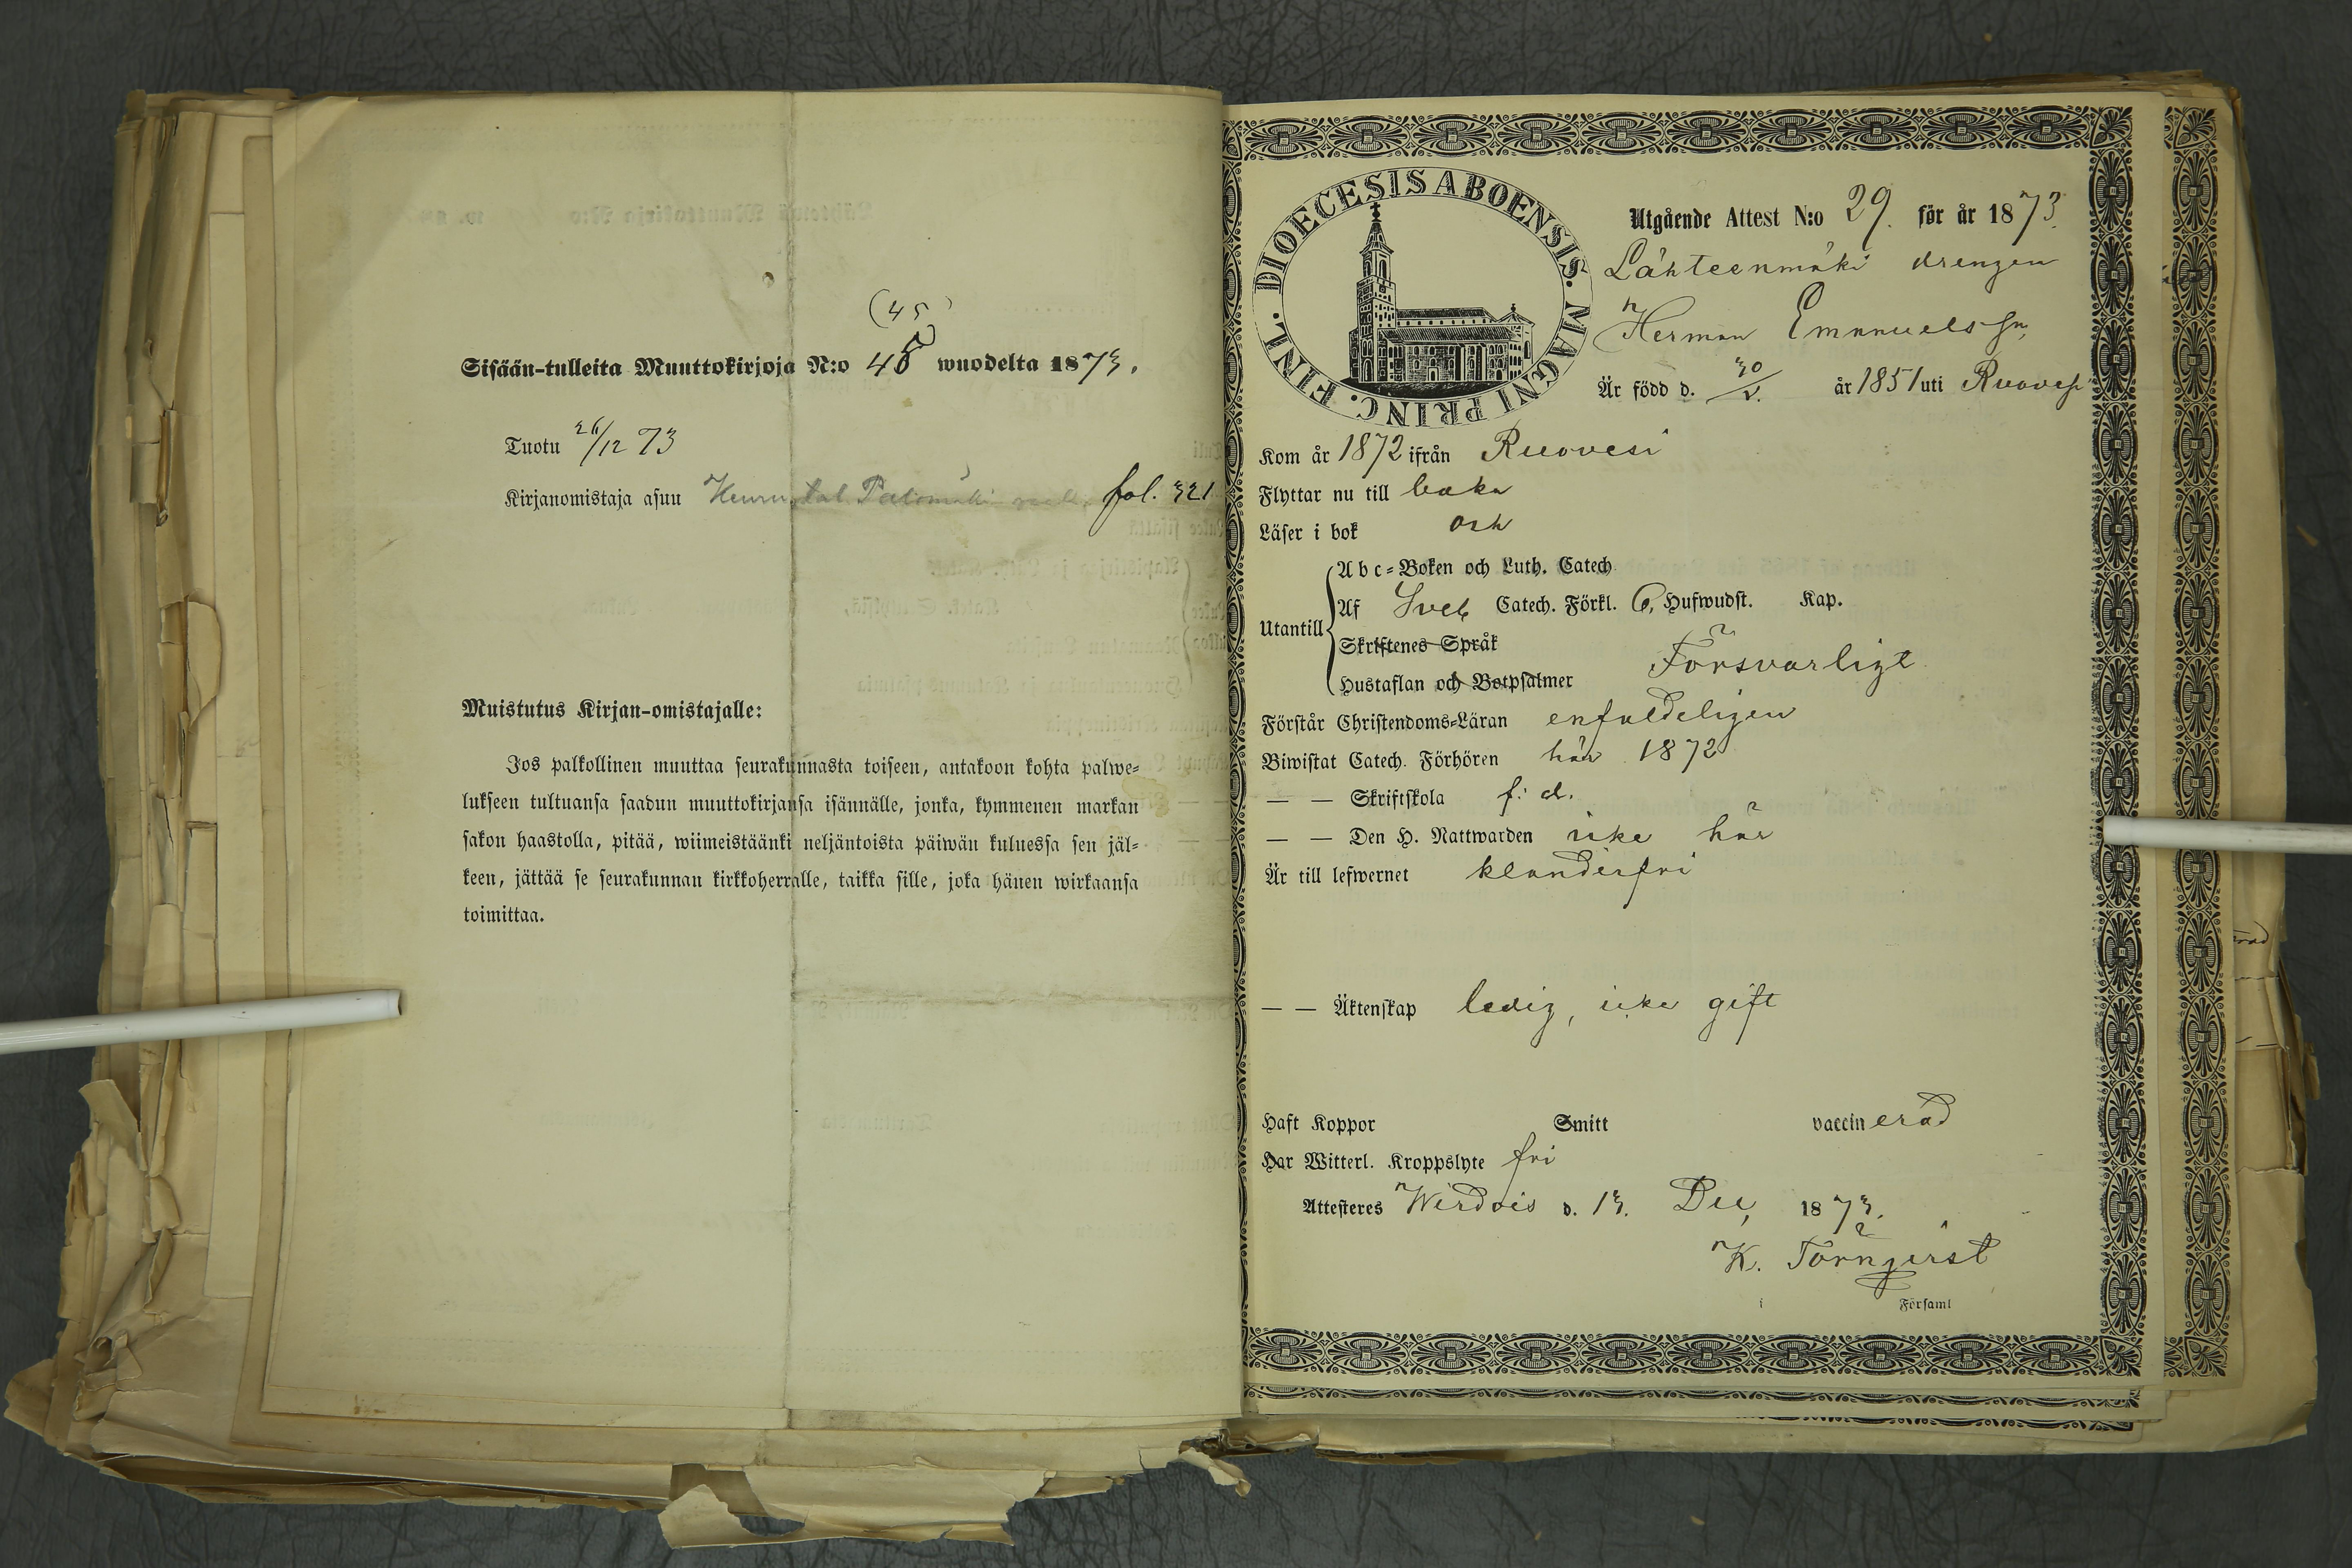 (45)
Sisään-tulleita Muuttokirjoja N:o 45 wuodelta 1873.
Tuotu 26/12 73
Kirjanomistaja asuu fol. 321
Muistutus Kirjan-omistajalle:
Jos palkollinen muuttaa seurakunnasta toiseen, antakoon kohta palwe-
lukseen tultuansa saadun muuttokirjansa isännälle, jonka, kymmenen markan
sakon haastolla, pitää, wiimeistäänki neljäntoista päiwän kuluessa sen jäl-
keen, jättää se seurakunnan kirkkoherralle, taikka sille, joka hänen wirkaansa
toimittaa.
DIOECESIS ABOENSIS. MAGNI PRINC. FINL.
Utgående Attest N:o 29. för år 1873.
Lähteenmäki drengen
Herman Emanuelss:n
Är född d. 30/5. år 1851 uti Ruovesi
Kom år 1872 ifrån Ruovesi
Flyttar nu till baka
Läser i bok och
Utantill
Abc-Boken och Luth. Catech
Af Sveb Catech. Förkl. 6, Hufwudst. Kap.
Skriftenes Språk
Hustaflan och Botpsalmer Försvarligt
Förstår Christendoms-Läran enfaldeligen
Biwistat Catech. Förhören här 1872
— — Skriftskola f: d.
— — Den H. Nattwarden icke här
Är till lefwernet klanderfri
— — Äktenskap ledig, icke gift
Haft Koppor Smitt vaccinerad
Har Witterl. Kroppslyte fri
Attesteres Wirdois d. 13. Dec, 1873.
K. Törnqvist
i Församl